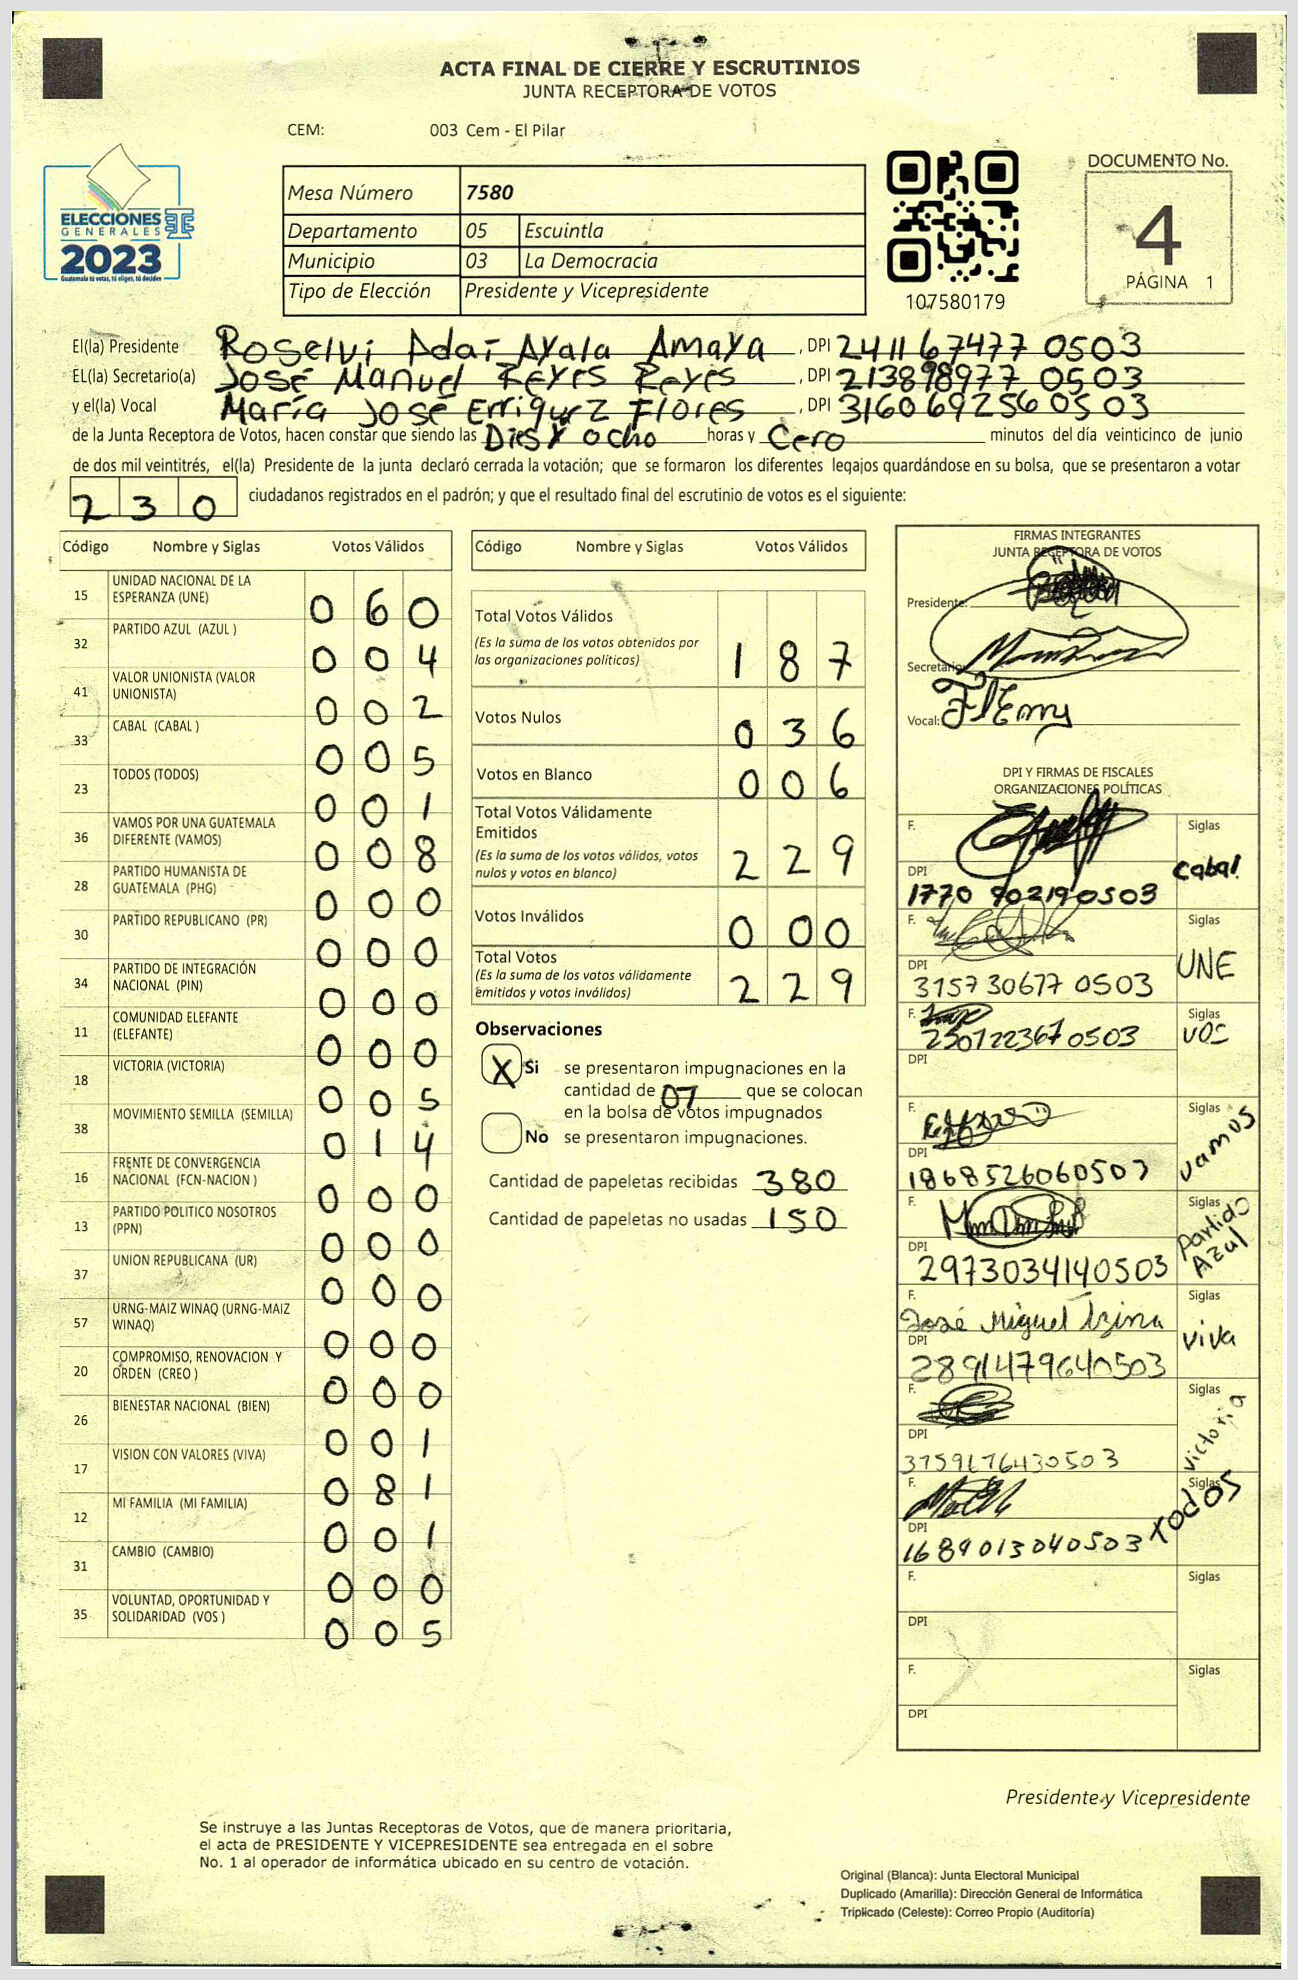 ACTA FINAL DE CIERRE Y ESCRUTINIOS
JUNTA RECEPTORA DE VOTOS
CEM: 003 Cem - El Pilar
ELECCIONES
GENERALES
2023
Guatemala tú votas, tú eliges, tú decides
Mesa Número 7580
Departamento 05 Escuintla
Municipio 03 La Democracia
Tipo de Elección Presidente y Vicepresidente
107580179
DOCUMENTO No.
4
PÁGINA 1
El(la) Presidente Roselvi Adaí Ayala Amaya, DPI 2411 67477 0503
EL(la) Secretario(a) José Manuel Reyes Reyes, DPI 213898977 0503
y el(la) Vocal María José Erriqurz Flores, DPI 3160692560503
de la Junta Receptora de Votos, hacen constar que siendo las Dies y ocho horas y Cero minutos del día veinticinco de junio
de dos mil veintitrés, el(la) Presidente de la junta declaró cerrada la votación; que se formaron los diferentes legajos guardándose en su bolsa, que se presentaron a votar
230 ciudadanos registrados en el padrón; y que el resultado final del escrutinio de votos es el siguiente:
Código Nombre y Siglas Votos Válidos
15 UNIDAD NACIONAL DE LA ESPERANZA (UNE) 060
32 PARTIDO AZUL (AZUL ) 004
41 VALOR UNIONISTA (VALOR UNIONISTA) 002
33 CABAL (CABAL ) 005
23 TODOS (TODOS) 001
36 VAMOS POR UNA GUATEMALA DIFERENTE (VAMOS) 008
28 PARTIDO HUMANISTA DE GUATEMALA (PHG) 000
30 PARTIDO REPUBLICANO (PR) 000
34 PARTIDO DE INTEGRACIÓN NACIONAL (PIN) 000
11 COMUNIDAD ELEFANTE (ELEFANTE) 000
18 VICTORIA (VICTORIA) 005
38 MOVIMIENTO SEMILLA (SEMILLA) 014
16 FRENTE DE CONVERGENCIA NACIONAL (FCN-NACION ) 000
13 PARTIDO POLITICO NOSOTROS (PPN) 000
37 UNION REPUBLICANA (UR) 000
57 URNG-MAIZ WINAQ (URNG-MAIZ WINAQ) 000
20 COMPROMISO, RENOVACION Y ORDEN (CREO ) 000
26 BIENESTAR NACIONAL (BIEN) 001
17 VISION CON VALORES (VIVA) 081
12 MI FAMILIA (MI FAMILIA) 001
31 CAMBIO (CAMBIO) 000
35 VOLUNTAD, OPORTUNIDAD Y SOLIDARIDAD (VOS ) 005
Código Nombre y Siglas Votos Válidos
Total Votos Válidos
(Es la suma de los votos obtenidos por
las organizaciones políticas) 187
Votos Nulos 036
Votos en Blanco 006
Total Votos Válidamente
Emitidos
(Es la suma de los votos válidos, votos
nulos y votos en blanco) 229
Votos Inválidos 000
Total Votos
(Es la suma de los votos válidamente
emitidos y votos inválidos) 229
Observaciones
X Si se presentaron impugnaciones en la
cantidad de 07 que se colocan
en la bolsa de votos impugnados
No se presentaron impugnaciones.
Cantidad de papeletas recibidas 380
Cantidad de papeletas no usadas 150
FIRMAS INTEGRANTES
JUNTA RECEPTORA DE VOTOS
Presidente:
Secretario:
Vocal:
DPI Y FIRMAS DE FISCALES
ORGANIZACIONES POLÍTICAS
F. Siglas
Cabal
DPI
1770 902190503
F. Siglas
UNE
DPI
315730677 0503
F. Siglas
VOS
250722367 0503
DPI
F. Siglas
vamos
DPI
1868526060503
F. Siglas
Partido Azul
DPI
2973034140503
F. Siglas
José Miguel
viva
DPI
2891479640503
F. Siglas
victoria
DPI
3759176430503
F. Siglas
todos
DPI
1689013040503
F. Siglas
DPI
F. Siglas
DPI
Presidente y Vicepresidente
Se instruye a las Juntas Receptoras de Votos, que de manera prioritaria,
el acta de PRESIDENTE Y VICEPRESIDENTE sea entregada en el sobre
No. 1 al operador de informática ubicado en su centro de votación.
Original (Blanca): Junta Electoral Municipal
Duplicado (Amarilla): Dirección General de Informática
Triplicado (Celeste): Correo Propio (Auditoría)